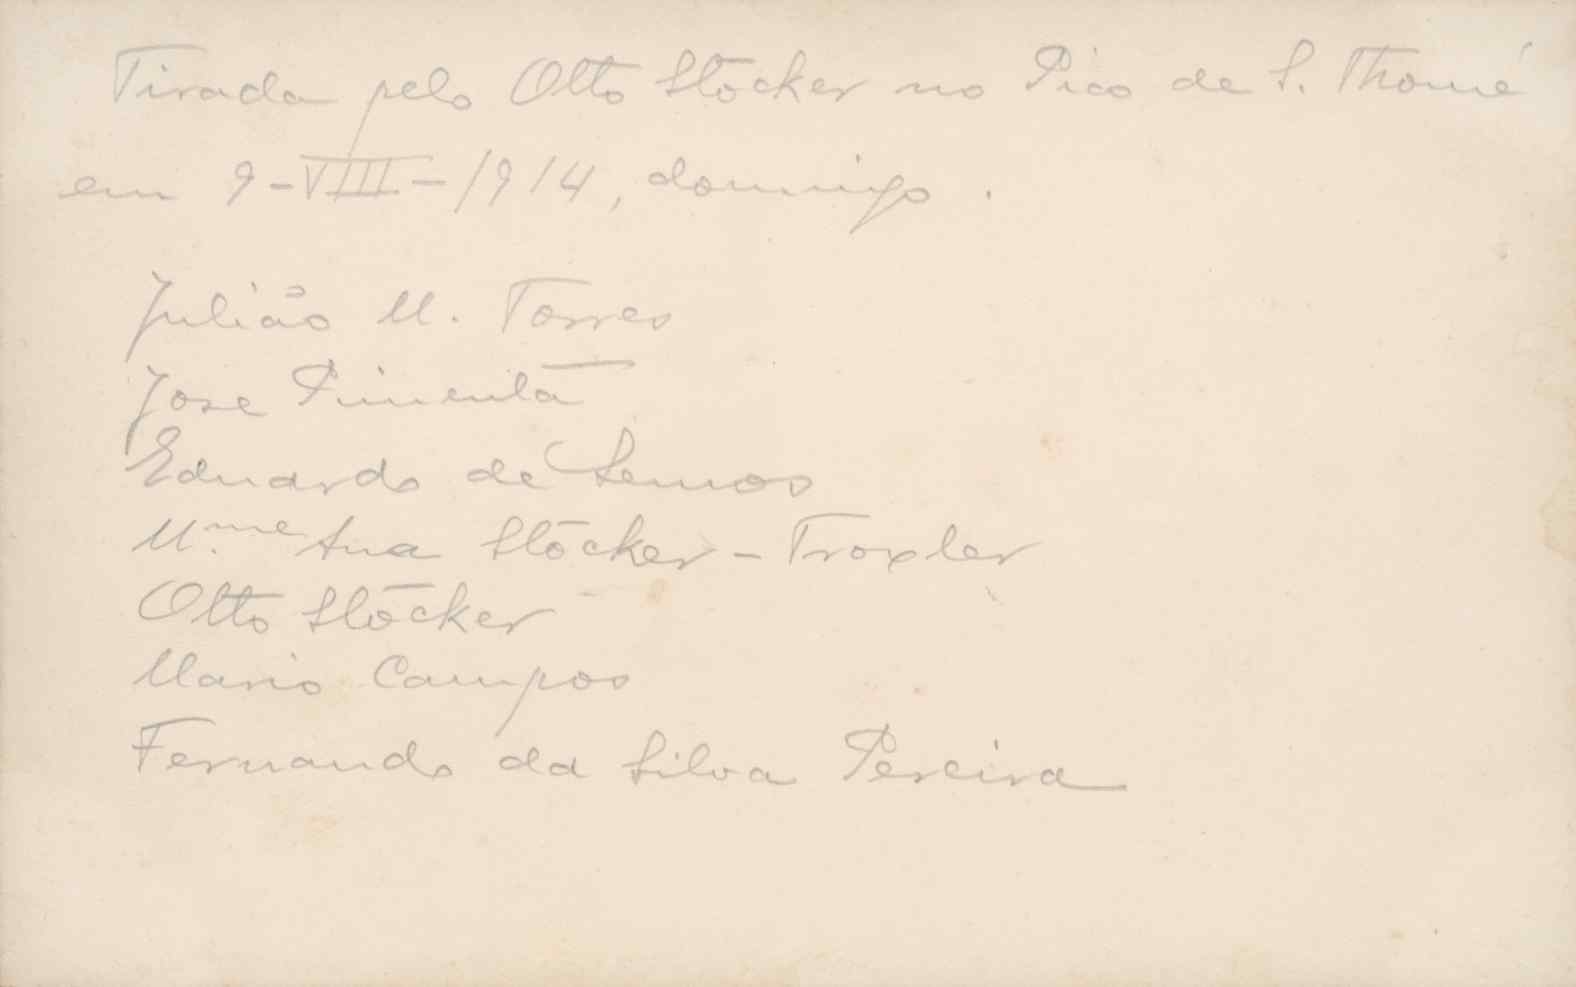 Tirada pelo Otto Stöcker no Pico de S. Thomé
em 9-VIII-1914, domingo.
Julião M. Torres
Jose Pimenta
Eduardo de Lemos
M.me Ana Stöcker-Troxler
Otto Stöcker
Mario Campos
Fernando da Silva Pereira